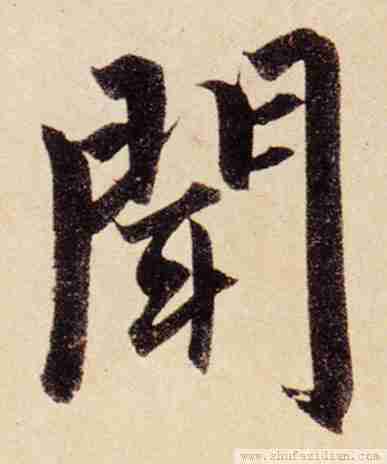 聞
www.shufazidian.com